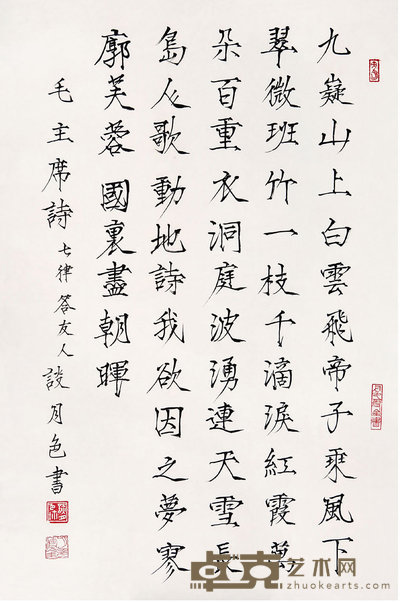 九嶷山上白雲飛帝子乘風下
翠微班竹一枝千滴淚紅霞萬
朵百重衣洞庭波湧連天雪長
島人歌動地詩我欲因之夢寥
廓芙蓉國裏盡朝暉
毛主席詩七律答友人談月色書
卓克艺术网
zhuokearts.com